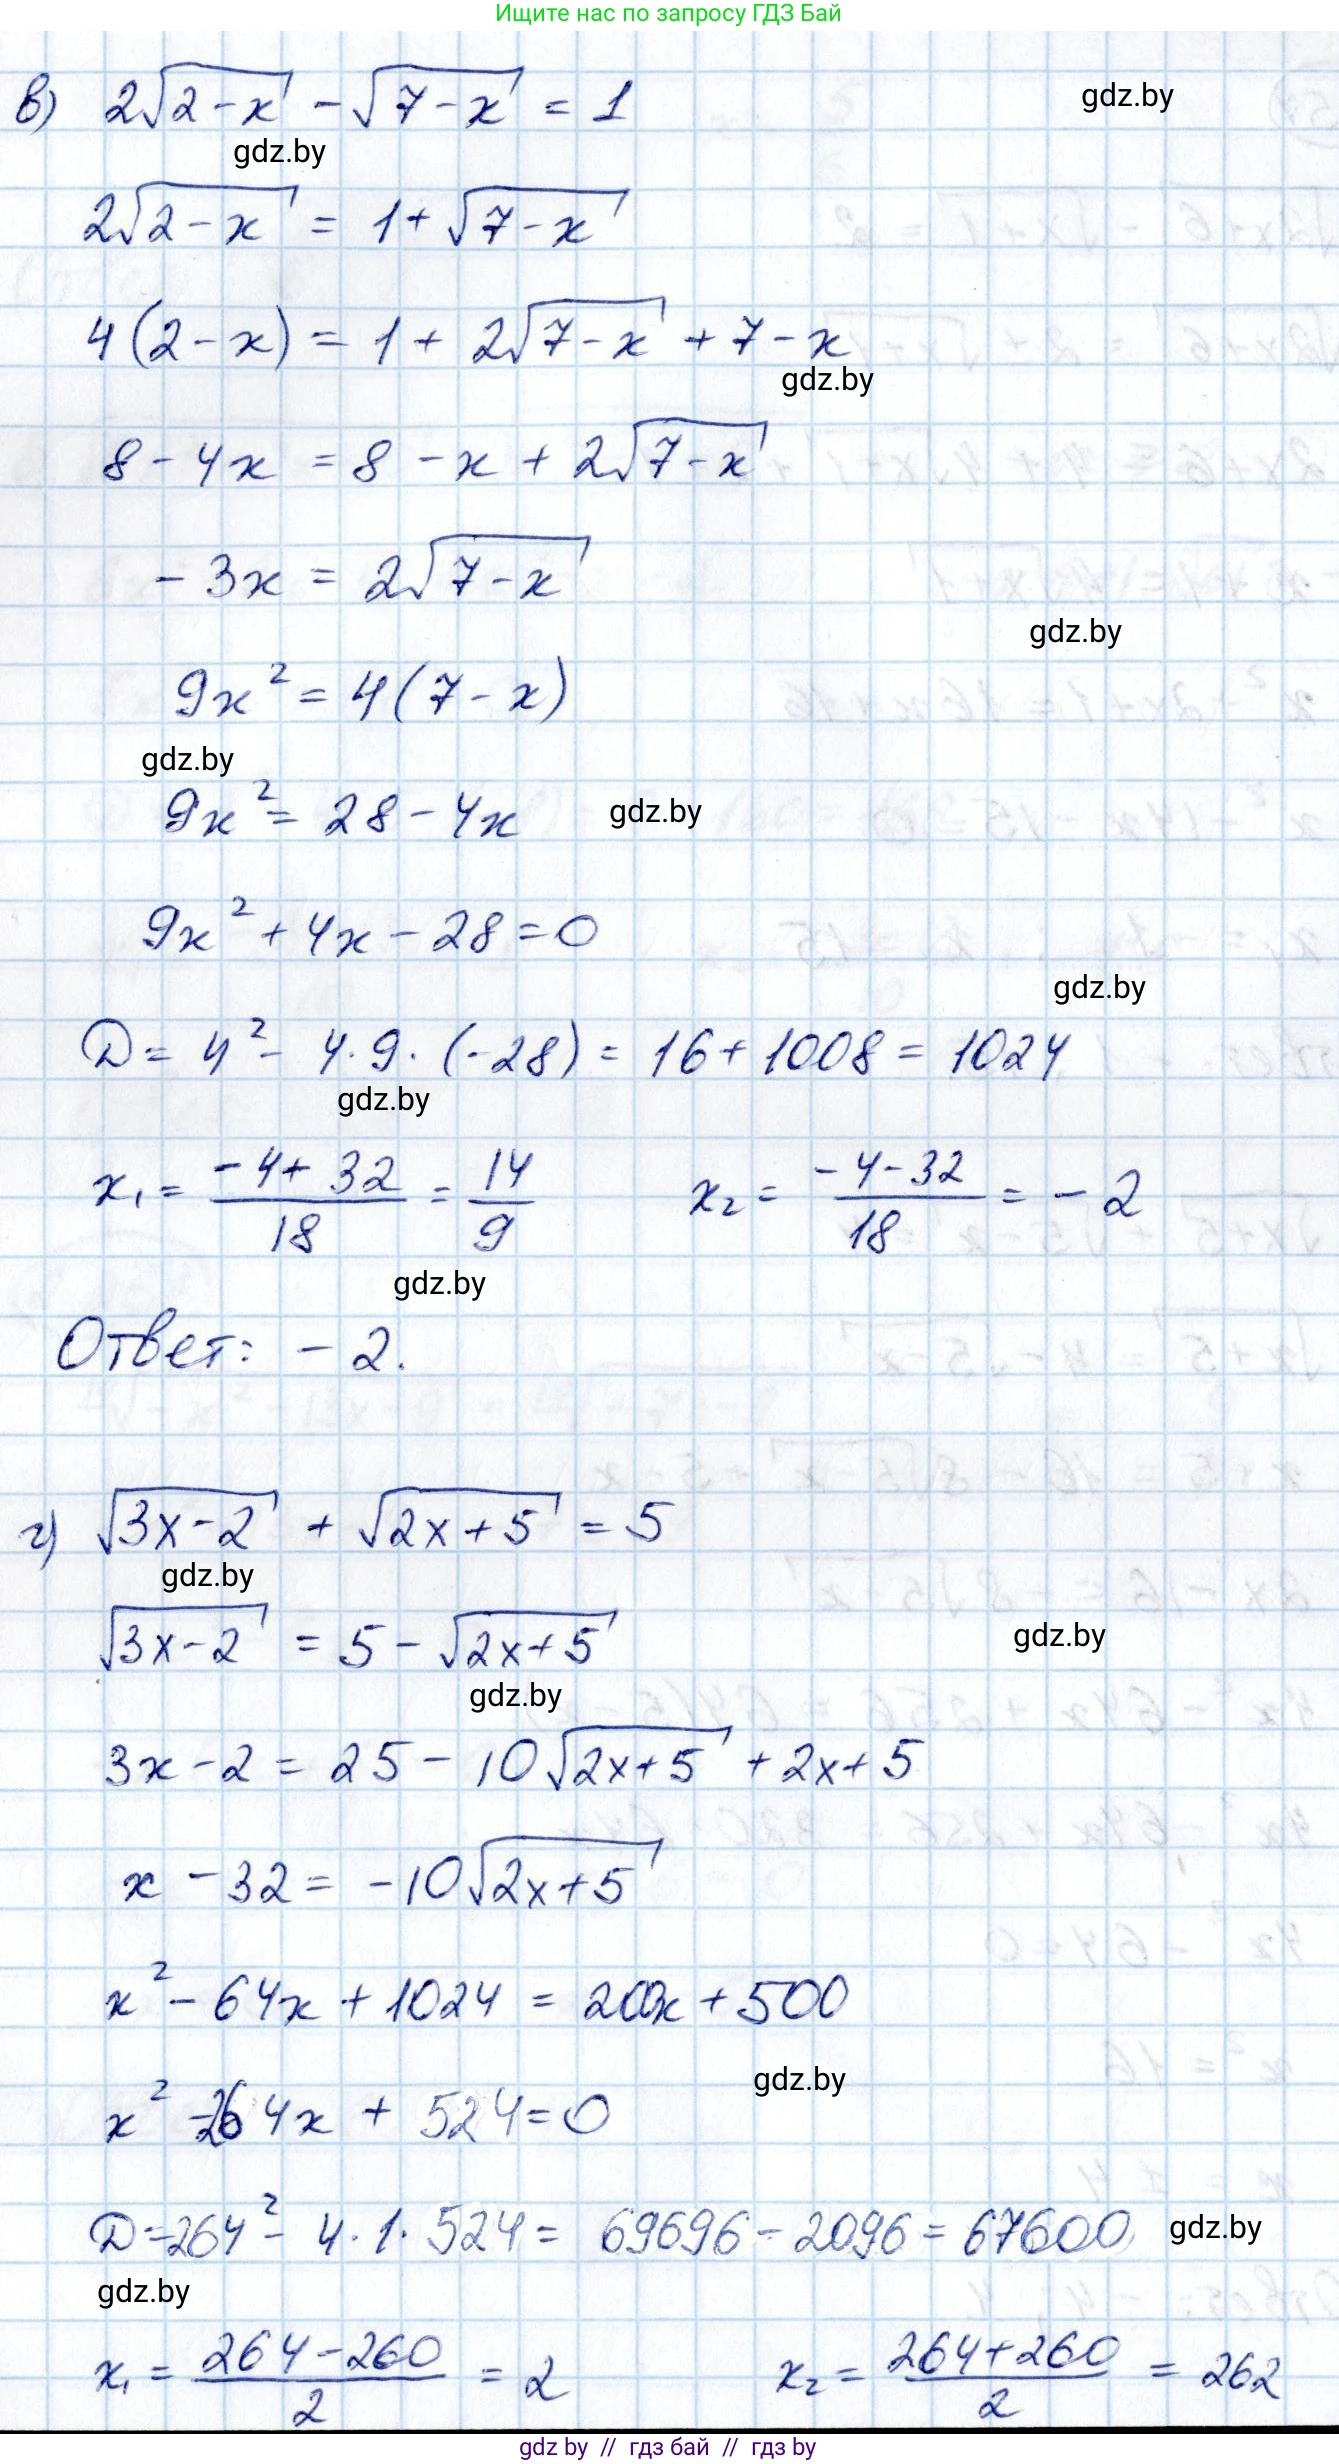 Ищите нас по запросу ГДЗ Бай
в) 2√(2-x) - √(7-x) = 1
gdz.by
gdz.by
2√(2-x) = 1 + √(7-x)
4(2-x) = 1 + 2√(7-x) + 7 - x
gdz.by
8 - 4x = 8 - x + 2√(7-x)
-3x = 2√(7-x)
gdz.by
9x² = 4(7-x)
gdz.by
9x² = 28 - 4x
gdz.by
9x² + 4x - 28 = 0
gdz.by
D = 4² - 4·9·(-28) = 16 + 1008 = 1024
gdz.by
x₁ = (-4+32)/18 = 14/9 x₂ = (-4-32)/18 = -2
gdz.by
Ответ: -2.
г) √(3x-2) + √(2x+5) = 5
gdz.by
√(3x-2) = 5 - √(2x+5)
gdz.by
gdz.by
3x - 2 = 25 - 10√(2x+5) + 2x + 5
x - 32 = -10√(2x+5)
x² - 64x + 1024 = 200x + 500
gdz.by
x² - 264x + 524 = 0
D = 264² - 4·1·524 = 69696 - 2096 = 67600
gdz.by
gdz.by
x₁ = (264-260)/2 = 2 x₂ = (264+260)/2 = 262
gdz by // гдз бай // гдз by